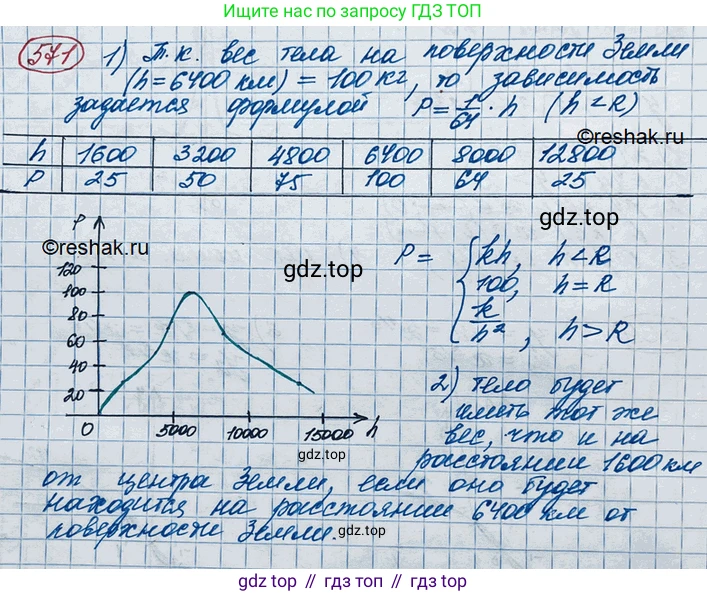 Ищите ответы по запросу ГДЗ ТОП
571 1) Т.к. вес тела на поверхности Земли
(h=6400 км) = 100 кг, то зависимость
задается формулой P = 1/64 · h (h < R)
©reshak.ru
h 1600 3200 4800 6400 8000 12800
P 25 50 75 100 64 25
gdz.top
©reshak.ru
gdz.top
P
120
100
80
60
40
20
0 5000 10000 15000 h
P = { kh, h < R
100, h = R
k/h², h > R
2) тело будет
иметь тот же
вес, что и на
расстоянии 1600 км
от центра Земли, если оно будет
находится на расстоянии 6400 км от
поверхности Земли.
gdz.top
gdz.top // гдз.топ // гдз.top